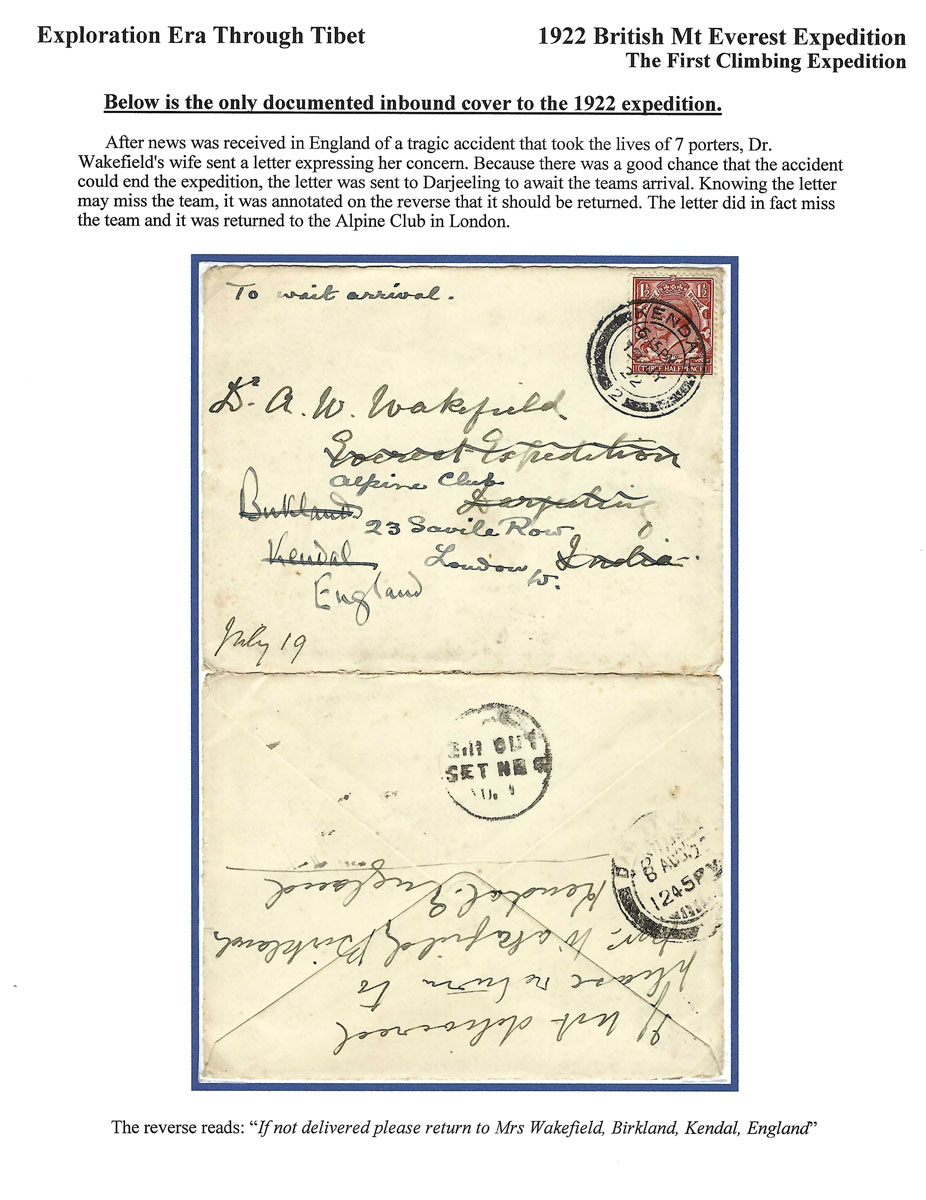 Exploration Era Through Tibet
1922 British Mt Everest Expedition
The First Climbing Expedition
Below is the only documented inbound cover to the 1922 expedition.
After news was received in England of a tragic accident that took the lives of 7 porters, Dr.
Wakefield's wife sent a letter expressing her concern. Because there was a good chance that the accident
could end the expedition, the letter was sent to Darjeeling to await the teams arrival. Knowing the letter
may miss the team, it was annotated on the reverse that it should be returned. The letter did in fact miss
the team and it was returned to the Alpine Club in London.
To wait arrival.
1½ 1½
THREE HALF PENCE
KENDAL
6.15PM
22
2
Dr. A. W. Wakefield
Everest Expedition
Alpine Club
Birkland Darjeeling
23 Savile Row
Kendal London W. India
England
July 19
OUT
SET
8 AUG 22
12 45 PM
If not delivered
please return to
Mrs. Wakefield, Birkland,
Kendal. England
The reverse reads: “If not delivered please return to Mrs Wakefield, Birkland, Kendal, England”